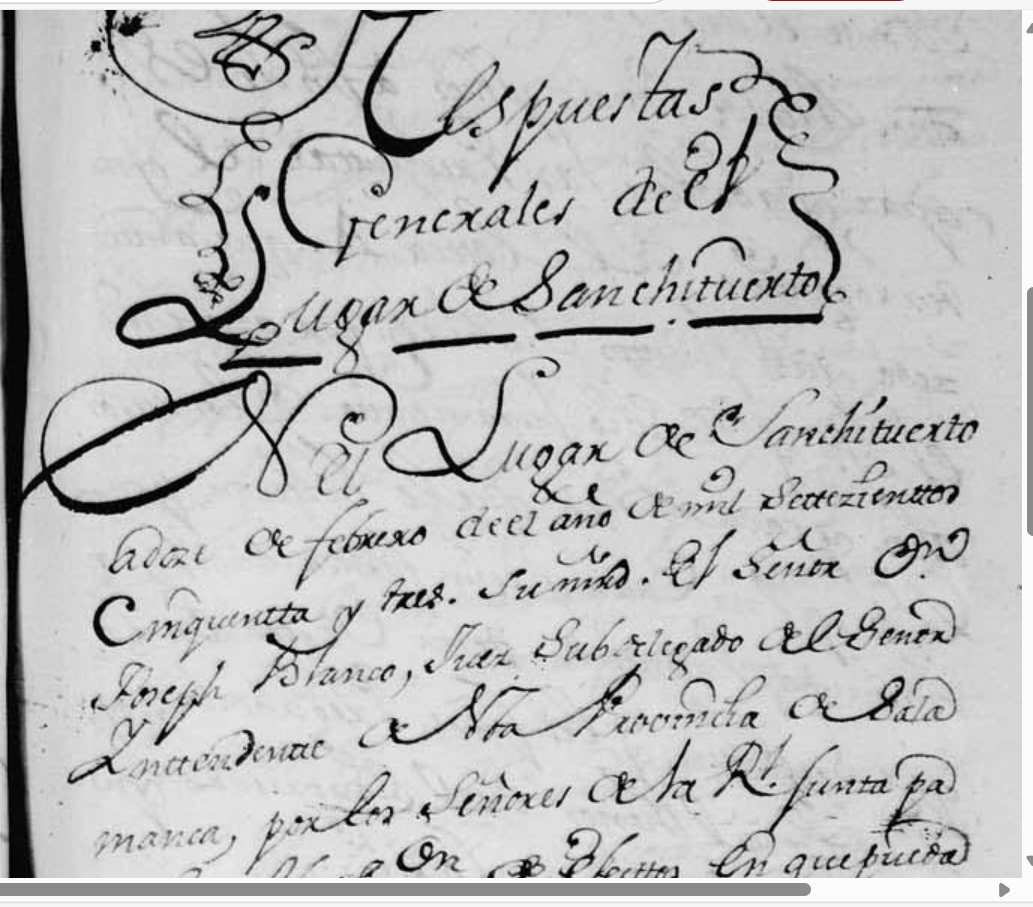 Respuestas
Generales de el
Lugar de Sanchituerto
En el Lugar de Sanchituerto
adoze de febrero de el año de mil Settezienttos
Cinquentta y tres. Su mrd. El Señor Dn
Joseph Blanco, Juez Subdelegado del Señor
Yntendente de esta Provincia de Sala
manca, por los Señores de la Rl. Junta pa
en que pueda